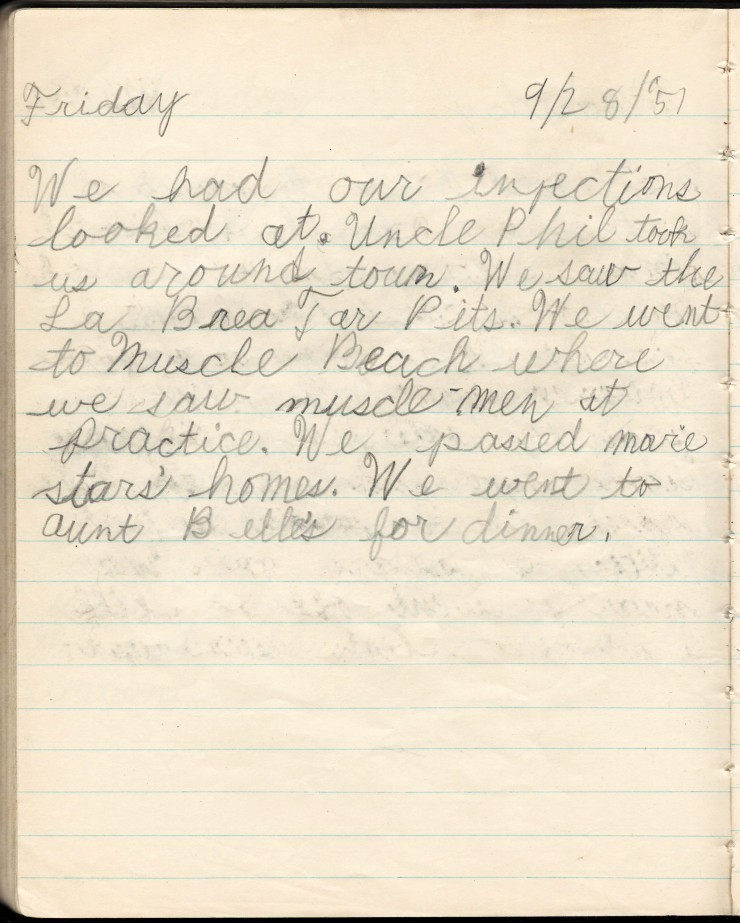 Friday 9/28/'51
We had our infections
looked at. Uncle Phil took
us around town. We saw the
La Brea Tar Pits. We went
to Muscle Beach where
we saw muscle-men at
practice. We passed movie
stars' homes. We went to
aunt Belle's for dinner.